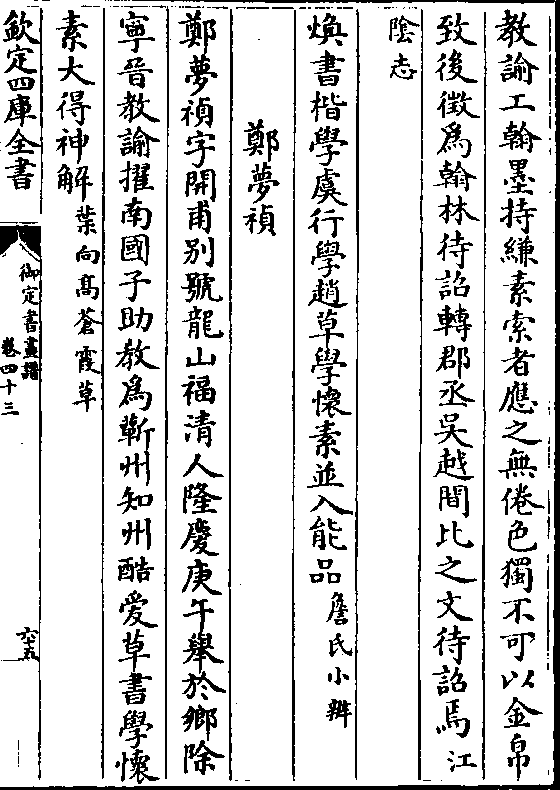 教諭工翰墨持縑素索者應之無倦色獨不可以金帛
致後徵爲翰林待詔轉郡丞吳越間比之文待詔焉江
陰志
煥書楷學虞行學趙草學懷素並入能品詹氏小辨
鄭夢禎
鄭夢禎字開甫别號龍山福清人隆慶庚午舉於鄉除
寧晉教諭擢南國子助教爲蘄州知州酷愛草書學懷
素大得神解葉向髙蒼霞草
欽定四庫全書
御定書畫譜
卷四十三
六十五